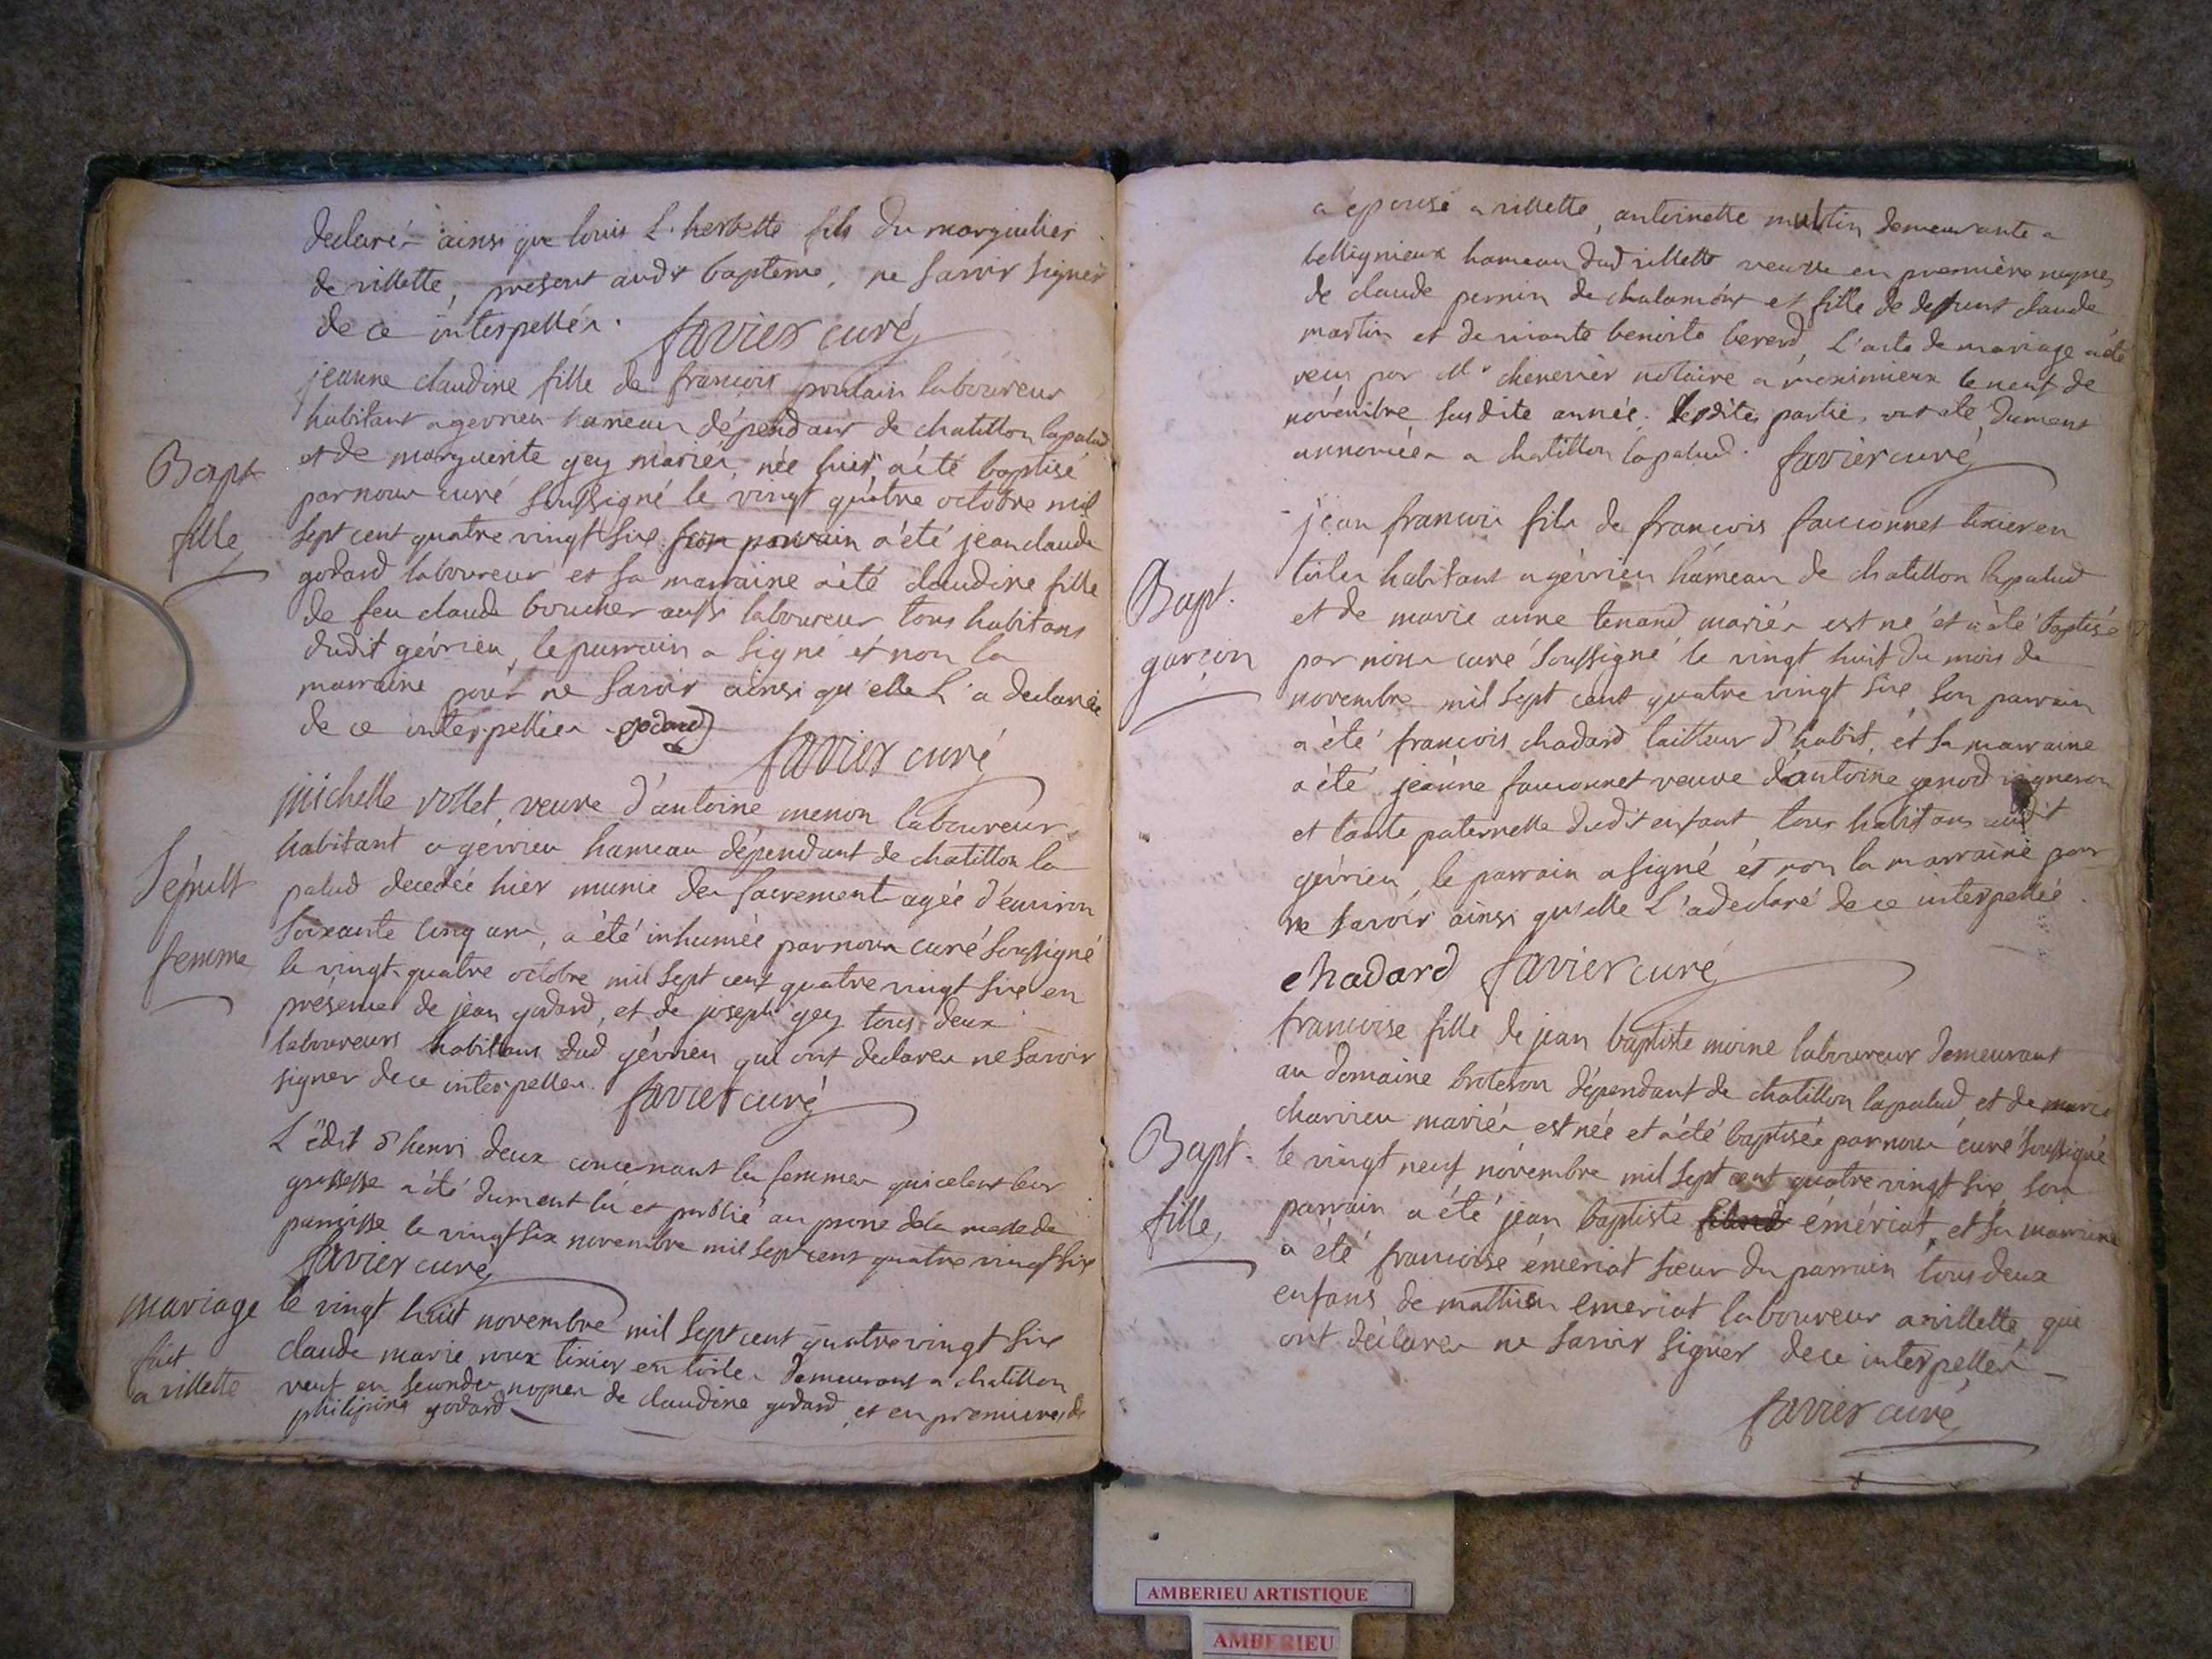 declarés ainsi que louis L'herbette fils du marguilier
de villette, present audt baptême, ne savoir signer
de ce interpellés. favier curé
jeanne claudine fille de francois poulain laboureur
habitant a gevrieu hameau dépendant de chatillon lapalud
et de marguerite gey mariés, née hier, a été baptisé
par nous curé soussigné le vingt quatre octobre mil
sept cent quatre vingt six son parrain a été jean claude
godard laboureur et sa marraine a été claudine fille
de feu claude boucher aussi laboureur tous habitans
dudit gévrieu, le parrain a signé et non la
marraine pour ne savoir ainsi qu'elle L'a declarée
de ce interpellée godard
favier curé
Bapt
fille
michelle vollet, veuve d'antoine menon laboureur
habitant a gévrieu hameau dépendant de chatillon la
palud decedée hier munie des sacrements agée d'environ
soixante cinq ans, a été inhumée par nous curé soussigné
le vingt quatre octobre mil sept cent quatre vingt six en
présence de jean godard, et de joseph gey tous deux
laboureurs habitans dud gévrieu qui ont declarés ne savoir
signer de ce interpelles. favier curé
Sépult
femme
L'édit d'henri deux concernant les femmes qui celent leur
grossesse a été dument lu et publié au prone de la messe de
paroisse le vingt six novembre mil sept cent quatre vingt six
favier curé
mariage
fait
a villette
le vingt huit novembre mil sept cent quatre vingt six
claude marie roux tixier en toiles demeurant a chatillon
veuf en secondes nopces de claudine godard, et en premieres de
philipine godard
a épousé a villette, antoinette martin demeurante a
bellignieux hameau dud villette veuve en première nopces
de claude perrin de chalamont et fille de deffunt claude
martin et de vivante benoite bererd, L'acte de mariage a été
reçu par Mr chenevier notaire a meximieux le neuf de
novémbre susdite année. lesdites parties ont été dument
annoncées a chatillon lapalud. favier curé
jean francois fils de francois fauconnet tixier en
toiles habitant a gévrieu hameau de chatillon lapalud
et de marie anne tenand mariés est né et a été baptisé
par nous curé soussigné le vingt huit du mois de
novembre mil sept cent quatre vingt six, son parrain
a été francois chadard tailleur d'habit, et sa marraine
a été jeanne fauconnet veuve d'antoine genod vigneron
et tante paternelle dudit enfant tous habitans dudit
gévrieu, le parrain a signé et non la marraine pour
ne savoir ainsi qu'elle L'a declaré de ce interpellée.
chadard favier curé
Bapt.
garçon
francoise fille de jean baptiste moine laboureur demeurant
au domaine broteron dépendant de chatillon lapalud, et de marie
charvieu mariés est née et a été baptisée par nous curé soussigné
le vingt neuf novembre mil sept cent quatre vingt six, son
parrain a été jean baptiste émériat, et sa marraine
a été francoise émeriat soeur du parrain tous deux
enfans de mathieu emeriat laboureur a villette, qui
ont déclarés ne savoir signer de ce interpellés
favier curé
Bapt.
fille
AMBERIEU ARTISTIQUE
AMBERIEU